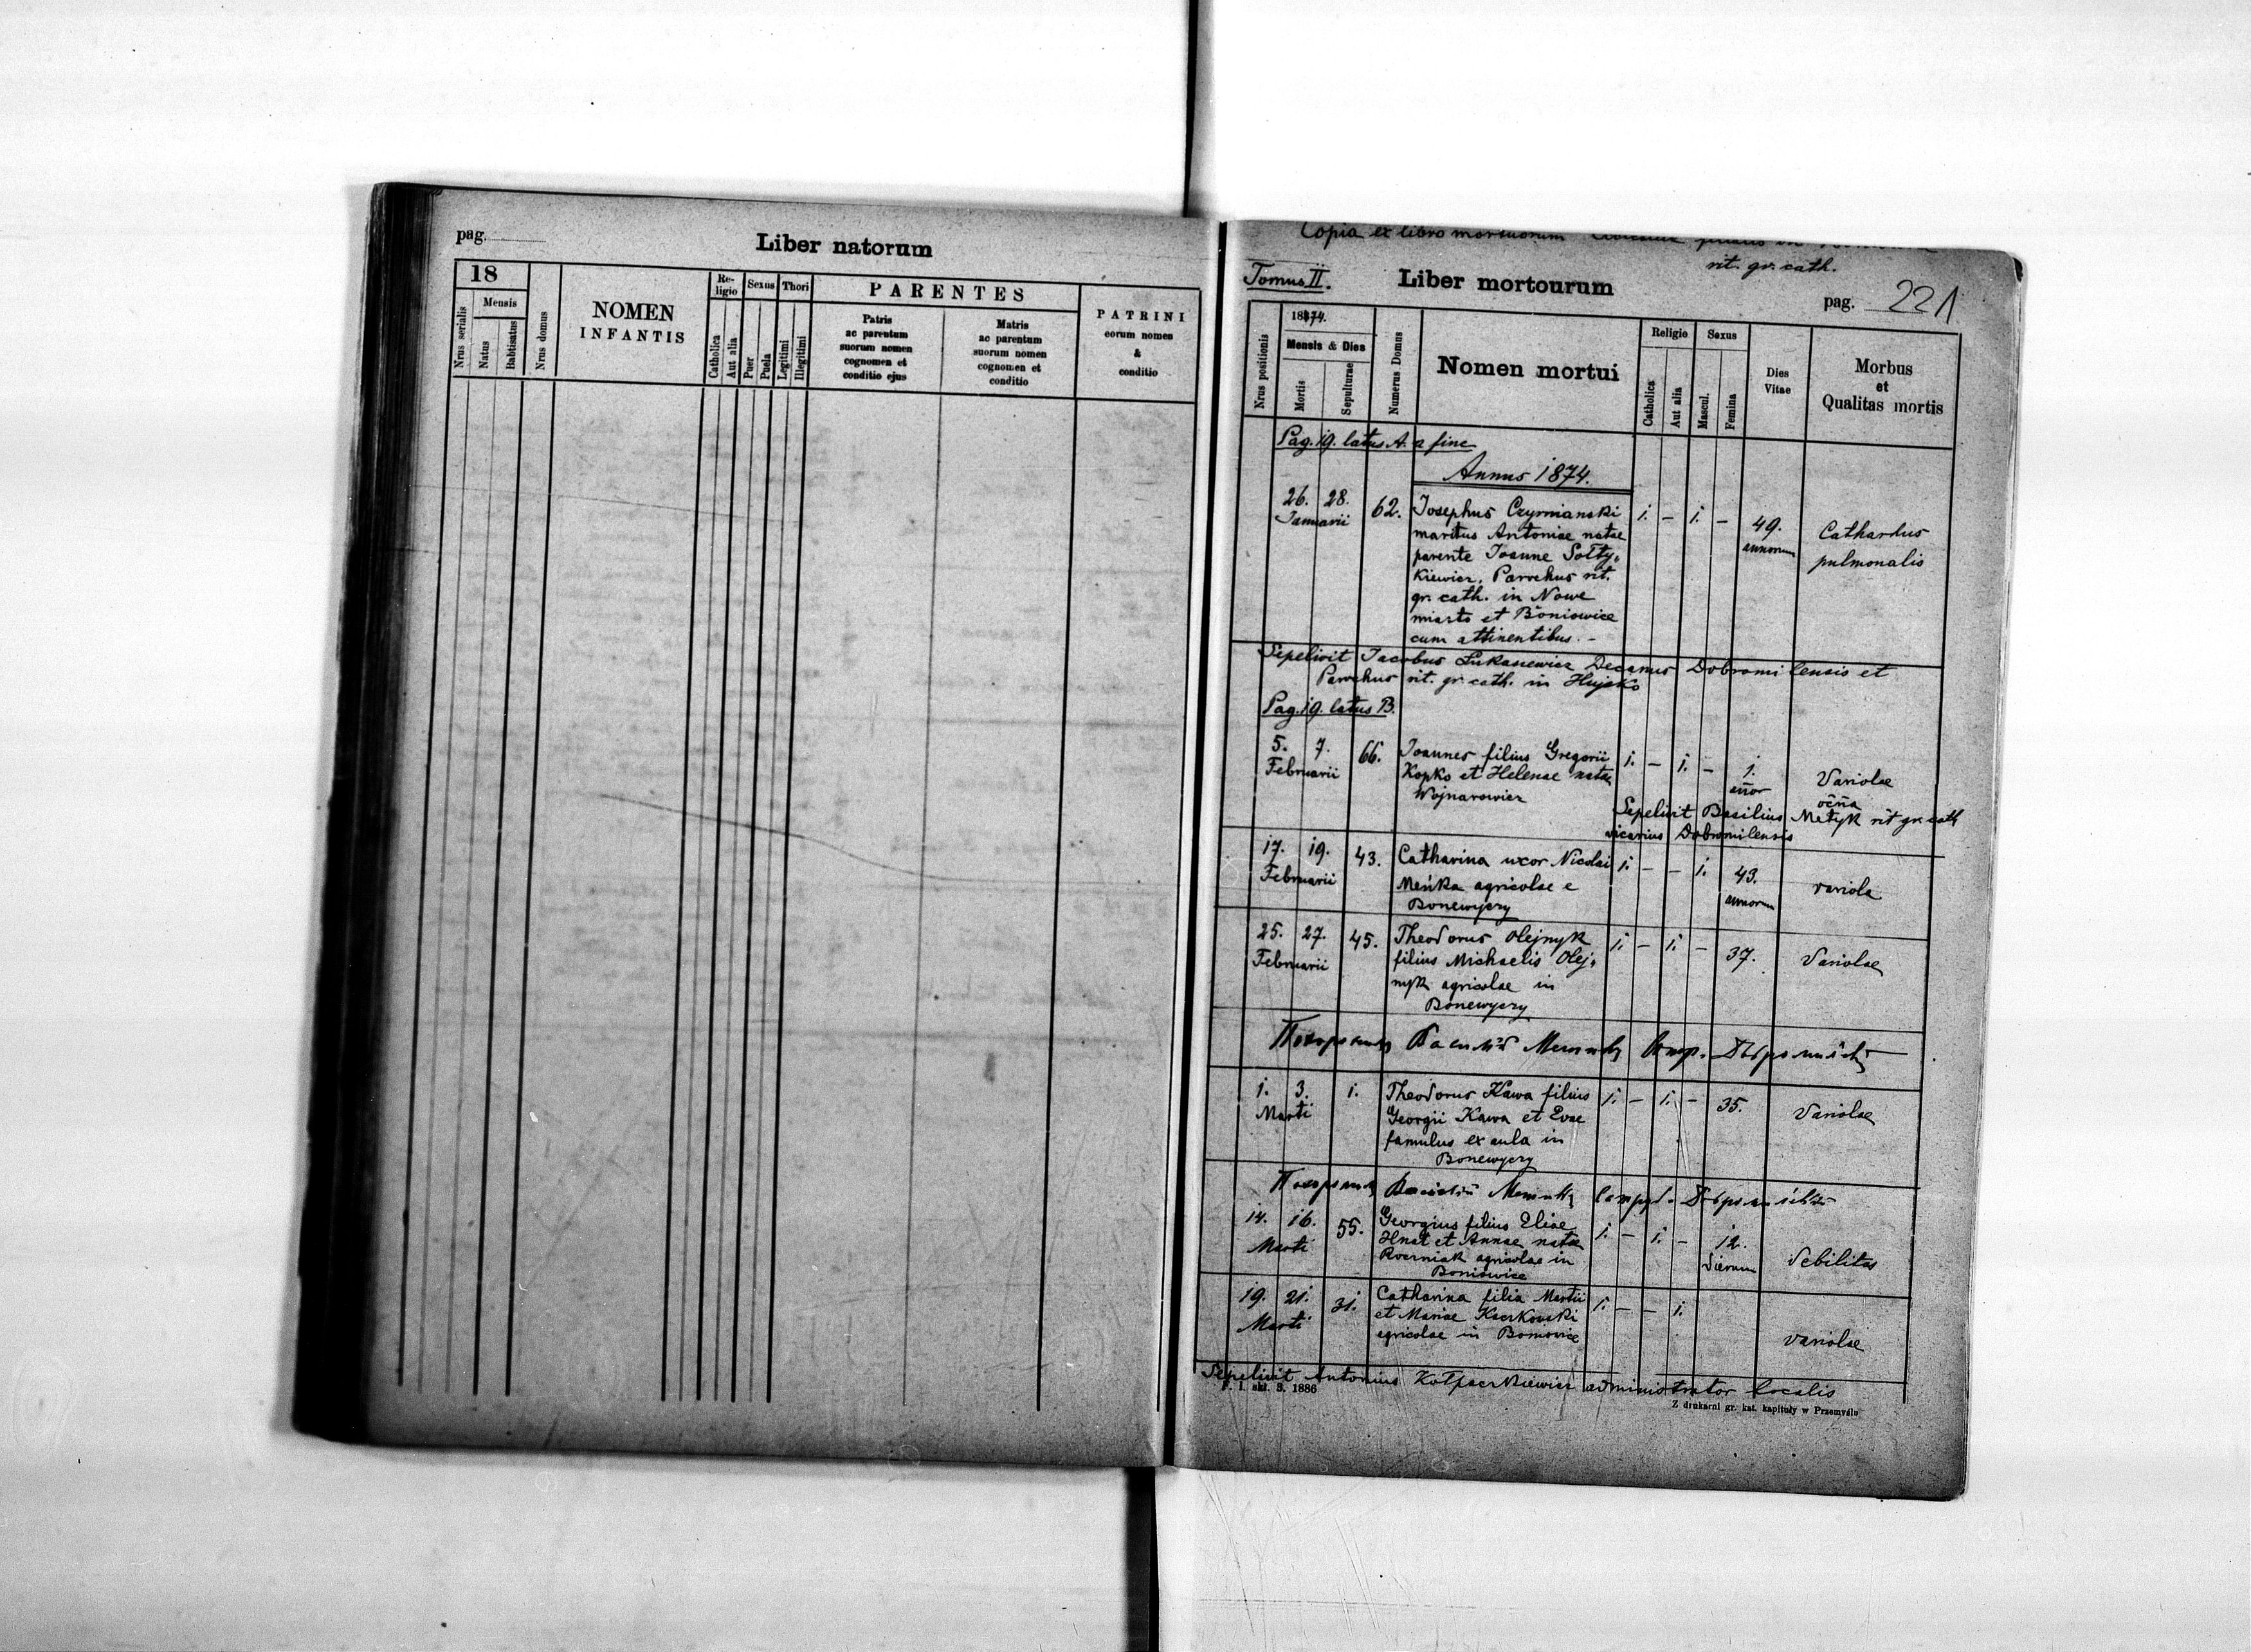 pag.
Liber natorum
18
Nrus serialis
Mensis
Natus
Babtisatus
Nrus domus
NOMEN
INFANTIS
Re-
ligio
Catholica
Aut alia
Sexus
Puer
Puela
Thori
Legitimi
Illegitimi
PARENTES
Patris
ac parentum
suorum nomen
cognomen et
conditio ejus
Matris
ac parentum
suorum nomen
cognomen et
conditio
PATRINI
eorum nomen
&
conditio
Copia ex libro mortuorum
rit. gr. cath.
Tomus II.
Liber mortourum
pag. 221
Nrus positionis
1874.
Mensis & Dies
Mortis
Sepulturae
Numerus Domus
Nomen mortui
Religio
Catholica
Aut alia
Sexus
Mascul.
Femina
Dies
Vitae
Morbus
et
Qualitas mortis
Pag. 19. latus A. a fine
Annus 1874.
26. 28. 62. Josephus Czyrnianski 1. – 1. – 49. Catharhus
Januarii maritus Antoniae natae annorum pulmonalis
parente Joanne Sołty-
kiewicz, Parochus rit.
gr. cath. in Nowe
miasto et Boniowice
cum attinentibus. –
Sepelivit Jacobus Łukasiewicz Decanus Dobromilensis et
Parochus rit. gr. cath. in Hujsko
Pag. 19. latus B.
5. 7. 66. Joannes filius Gregorii 1. – 1. – 1. Variolae
Februarii Kopko et Helenae natae
Wojnarowicz
Sepelivit Basilius Metyk rit gr. cath
vicarius Dobromilensis
17. 19. 43. Catharina uxor Nicolai 1. – – 1. 43. variola
Februarii Meńka agricolae e annorum
Bonewyczy
25. 27. 45. Theodorus Olejnyk 1. – 1. – 37. Variolae
Februarii filius Michaelis Olej-
nyk agricolae in
Bonewyczy
1. 3. 1. Theodorus Kawa filius 1. – 1. – 35. Variolae
Marti Georgii Kawa et Evae
famulus ex aula in
Bonewyczy
14. 16. 55. Georgius filius Eliae 1. – 1. – 12. debilitas
Marti Hnat et Annae natae dierum
agricolae in
Boniowice
19. 21. 31. Catharina filia Martii 1. – – 1. variolae
Marti et Mariae Kaczkowski
agricolae in Boniowice
Sepelivit Antonius administrator localis
F. I. akt. S. 1886
Z drukarni gr. kat. kapituły w Przemyślu